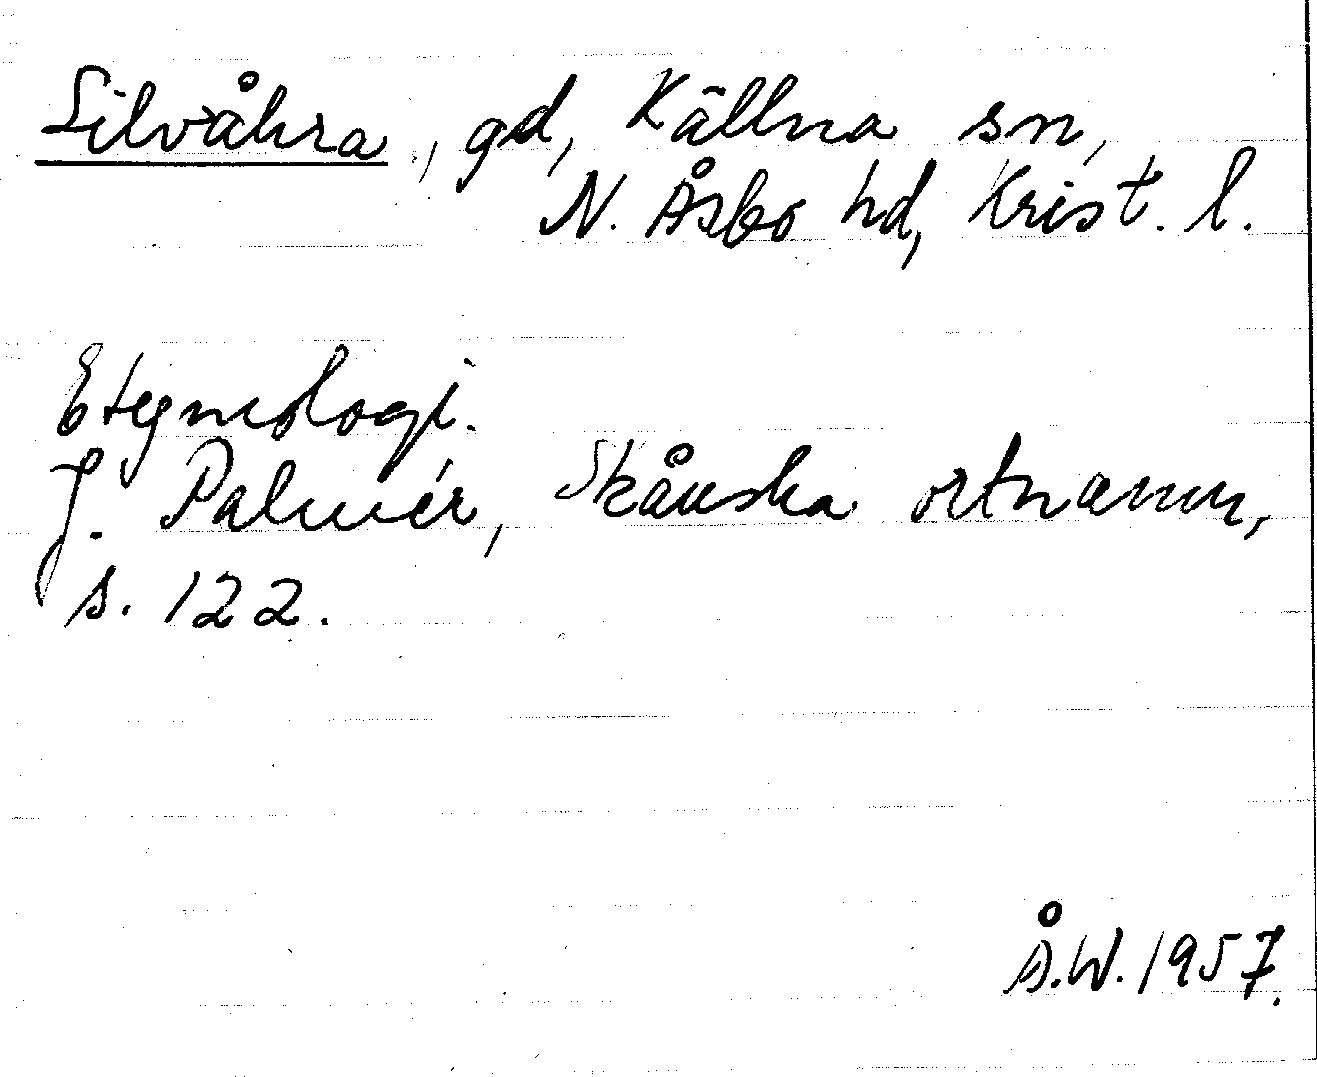 Silvåkra, gd, Källna sn,
N. Åsbo hd, Krist. l.
Etymologi.
J. Palmér, Skånska ortnamn,
s. 122.
Å.W. 1957.